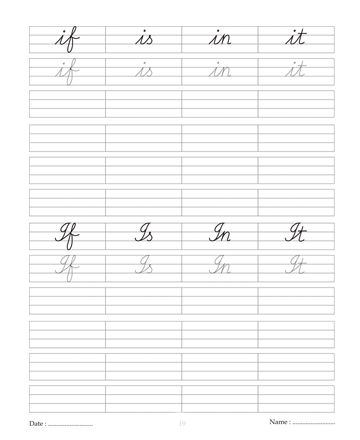 if is in it
if is in it
If Is In It
If Is In It
Date : ........................ 19 Name : ........................